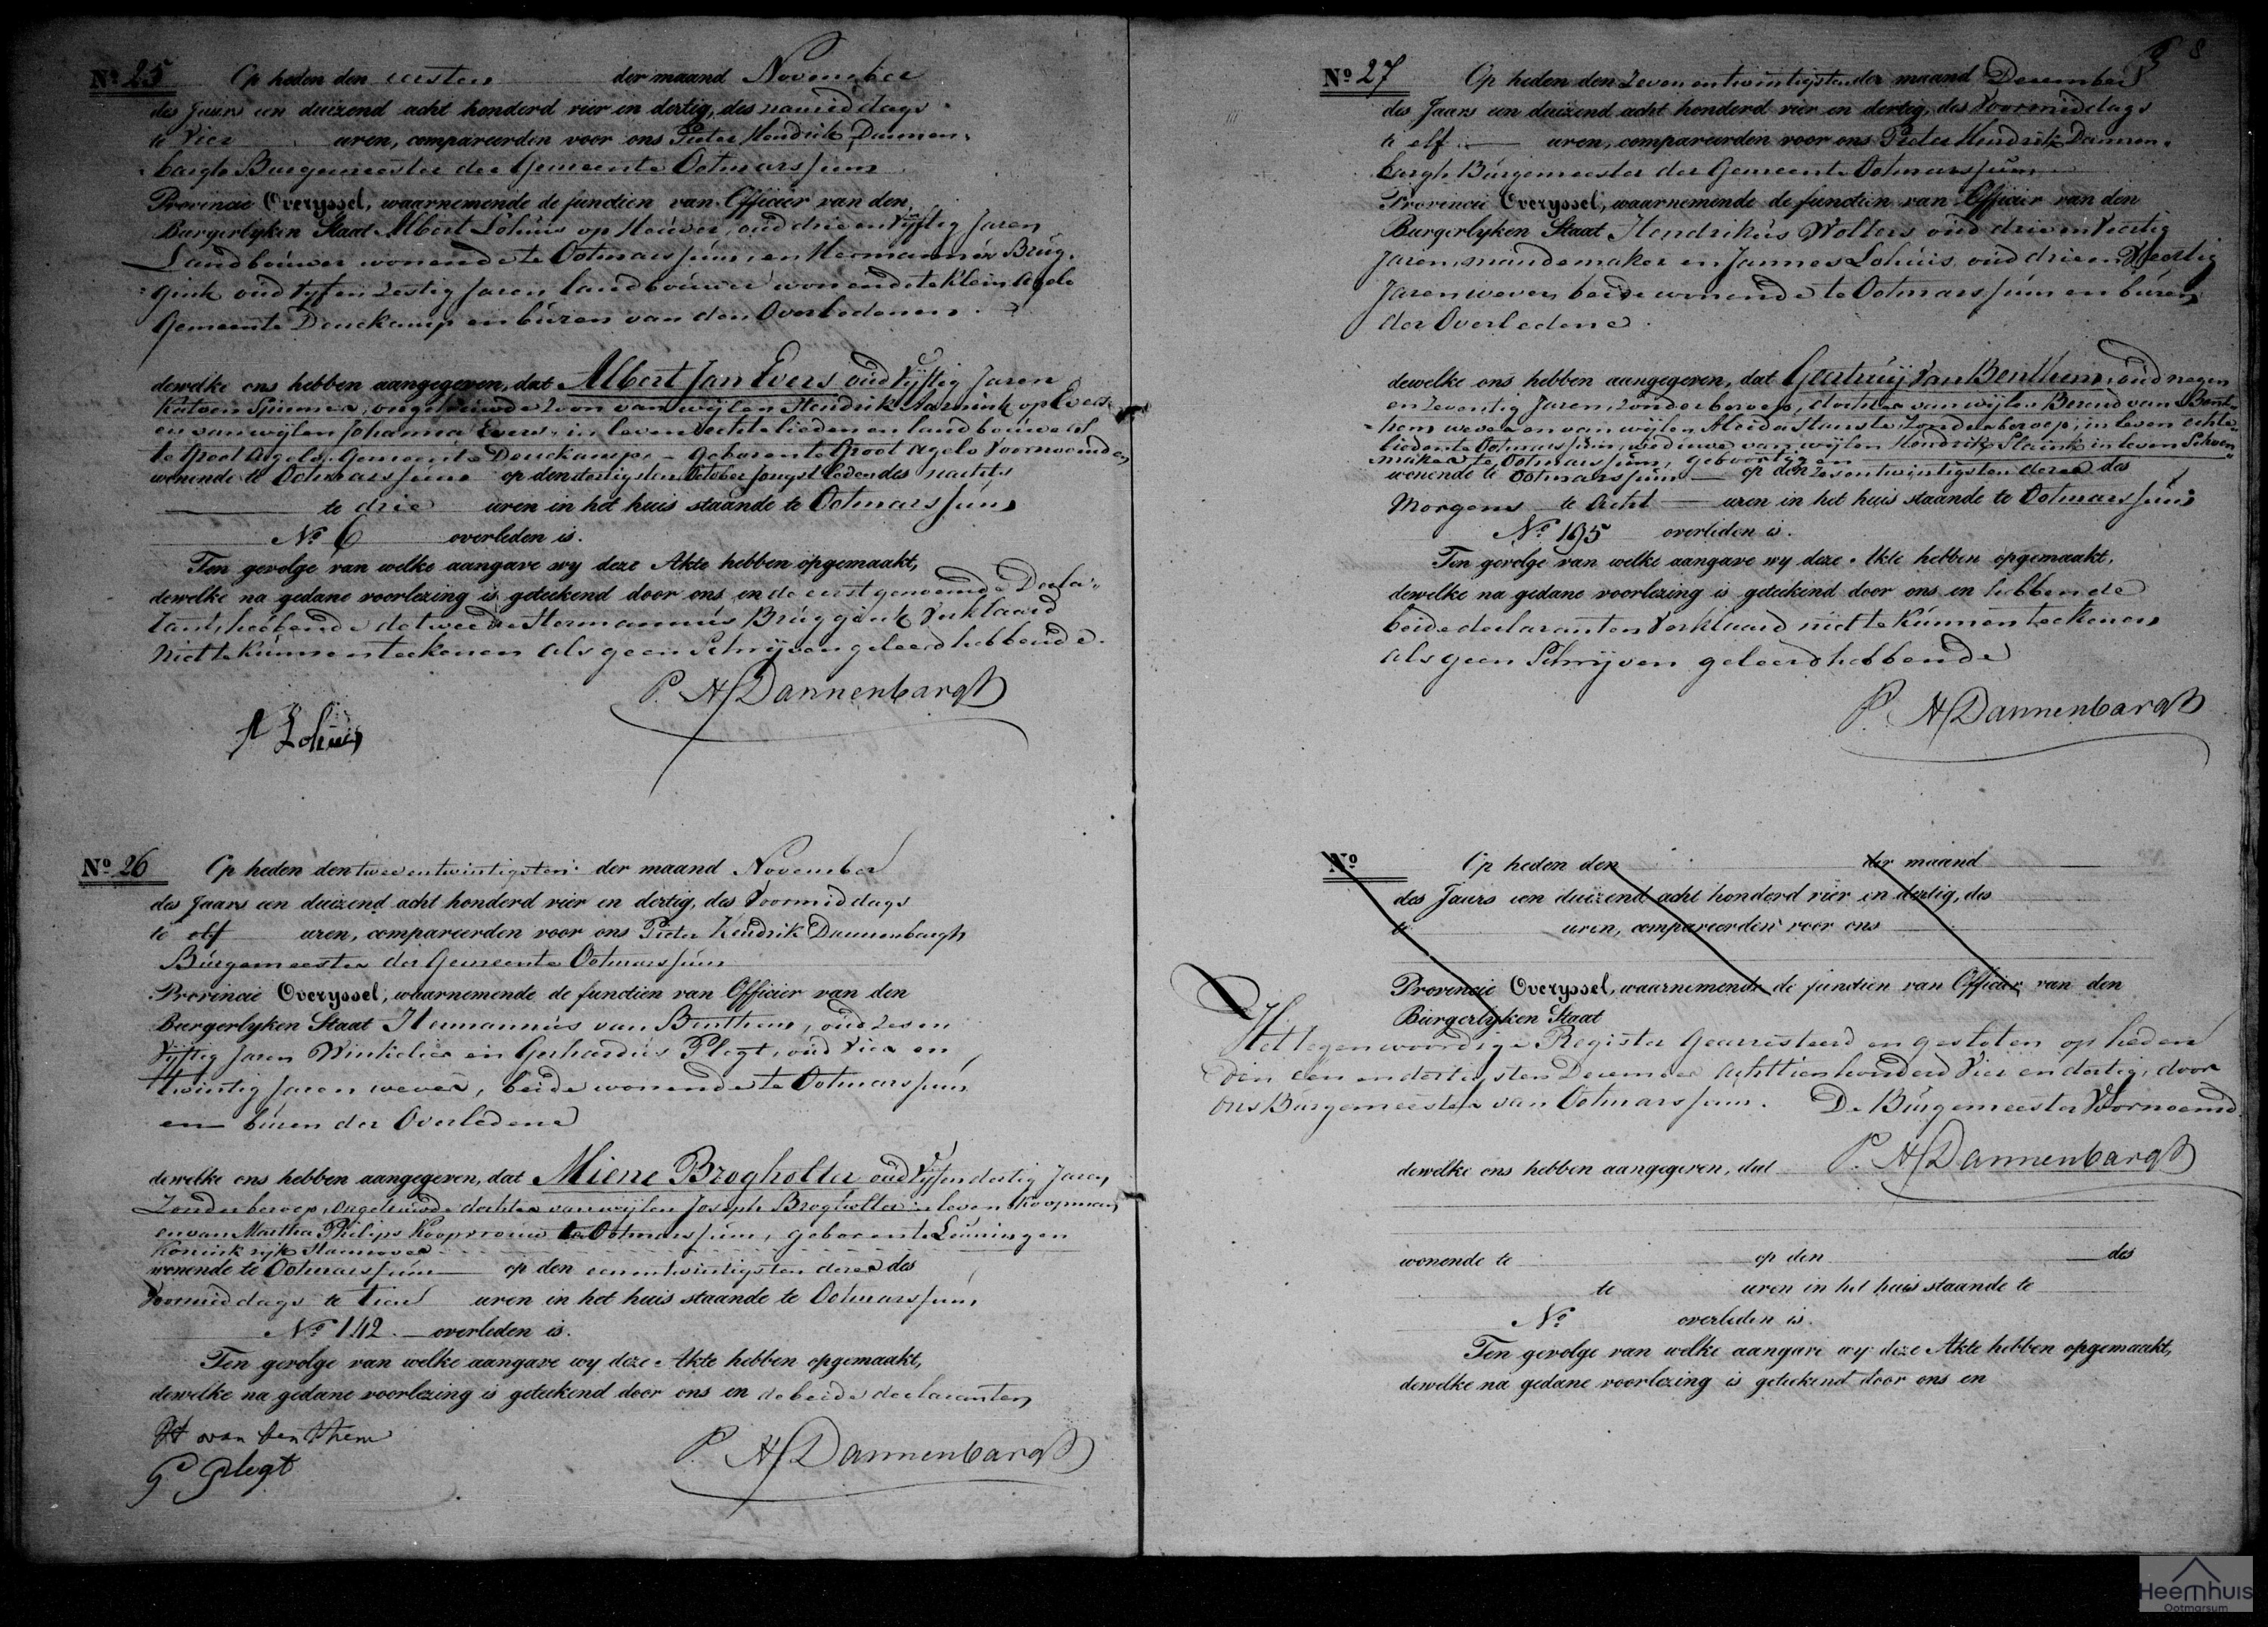 Nº 25 Op heden den eersten der maand November
des Jaars een duizend acht honderd vier en dertig, des namiddags
te Vier uren, compareerden voor ons Pieter Hendrik Dannen-
bargh Burgemeester der Gemeente Ootmarssum
Provincie Overyssel, waarnemende de functien van Officier van den
Burgerlyken Staat Albert Lohuis op Heuver, oud drie en Vijftig Jaren
Landbouwer wonende te Ootmarssum, en Hermannus Brúg-
gink oud Vyf en Zestig Jaren landbouwer wonende te Klein Agelo
Gemeente Denekamp en buren van den Overledenen.
dewelke ons hebben aangegeven, dat Albert Jan Evers oud Vijftig Jaren
Katoen Spinner, ongehuwde Zoon van wijlen Hendrik Aarnink op Evers
en van wijlen Johanna Evers, in leven Echtelieden en landbouwers
te Groot Agelo, Gemeente Denekamp, - geboren te Groot Agelo Voornoemd
wonende te Ootmarssum op den dertigsten October Jongst leden des nachts
te drie uren in het huis staande te Ootmarssum
Nº 6 overleden is.
Ten gevolge van welke aangave wy deze Akte hebben opgemaakt,
dewelke na gedane voorlezing is geteekend door ons en de eerstgenoemde Decla-
rant, hebbende de tweede Hermannus Brúggink Verklaard
niet te kunnen teekenen als geen Schrijven geleerd hebbende.
P. H. Dannenbargh
A Lohuis
Nº 26 Op heden den twee en twintigsten der maand November
des Jaars een duizend acht honderd vier en dertig, des Voormiddags
te elf uren, compareerden voor ons Pieter Hendrik Dannenbargh
Búrgemeester der Gemeente Ootmarssum
Provincie Overyssel, waarnemende de functien van Officier van den
Burgerlyken Staat Hermannus van Benthem, oud Zes en
Vijftig Jaren Winkelier en Gerhardus Plegt, oud Vier en
twintig Jaren wever, beide wonende te Ootmarssum
en buren der Overledene
dewelke ons hebben aangegeven, dat Miene Brogholter oud Vijf en dertig Jaren
Zonder beroep, ongehuwde dochter van wijlen Joseph Brogholter in leven Koopman
en van Martha Philips Koopvrouw te Ootmarssum, geboren te Leuningen
Koninkrijk Hannover
wonende te Ootmarssum op den een en twintigsten dezer des
Voormiddags te tien uren in het huis staande te Ootmarssum
Nº 142 overleden is.
Ten gevolge van welke aangave wy deze Akte hebben opgemaakt,
dewelke na gedane voorlezing is geteekend door ons en de beide declaranten
H van benthem
P. H. Dannenbargh
G Plegt
8
Nº 27 Op heden den Zeven en twintigsten der maand December
des Jaars een duizend acht honderd vier en dertig, des Voormiddags
te elf uren, compareerden voor ons Pieter Hendrik Dannen-
bargh Búrgemeester der Gemeente Ootmarssum
Provincie Overyssel, waarnemende de functien van Officier van den
Burgerlyken Staat Hendrikus Wolters oud drie en Veertig
Jaren, mandemaker en Jannes Lohuis oud drie en Veertig
Jaren wever, beide wonende te Ootmarssum en buren
der Overledene.
dewelke ons hebben aangegeven, dat Geertruij van Benthem, oud negen
en Zeventig Jaren, Zonder beroep, dochter van wijlen Berend van Bent-
hem wever en van wijlen Aleida Zonder beroep, in leven echte-
lieden te Ootmarssum, weduwe van wijlen Hendrik Slaink in leven Schoen-
maker te Ootmarssum, geboortig en
wonende te Ootmarssum op den Zes en twintigsten dezer des
Morgens te Acht uren in het huis staande te Ootmarssum
Nº 195 overleden is.
Ten gevolge van welke aangave wy deze Akte hebben opgemaakt,
dewelke na gedane voorlezing is geteekend door ons en hebbende
beide declaranten Verklaard niet te kunnen teekenen
als geen Schrijven geleerd hebbende
P. H. Dannenbargh
Nº Op heden den der maand
des Jaars een duizend acht honderd vier en dertig, des
te uren, compareerden voor ons
Provincie Overyssel, waarnemende de functien van Officier van den
Burgerlyken Staat
Het tegenwoordige Register Gearresteerd en gesloten op heden
den een en dertigsten December Achttienhonderd Vier en dertig, door
ons Búrgemeester van Ootmarssum. De Búrgemeester Voornoemd
P. H. Dannenbargh
dewelke ons hebben aangegeven, dat
wonende te op den des
te uren in het huis staande te
Nº overleden is.
Ten gevolge van welke aangave wy deze Akte hebben opgemaakt,
dewelke na gedane voorlezing is geteekend door ons en
Heemhuis
Ootmarsum